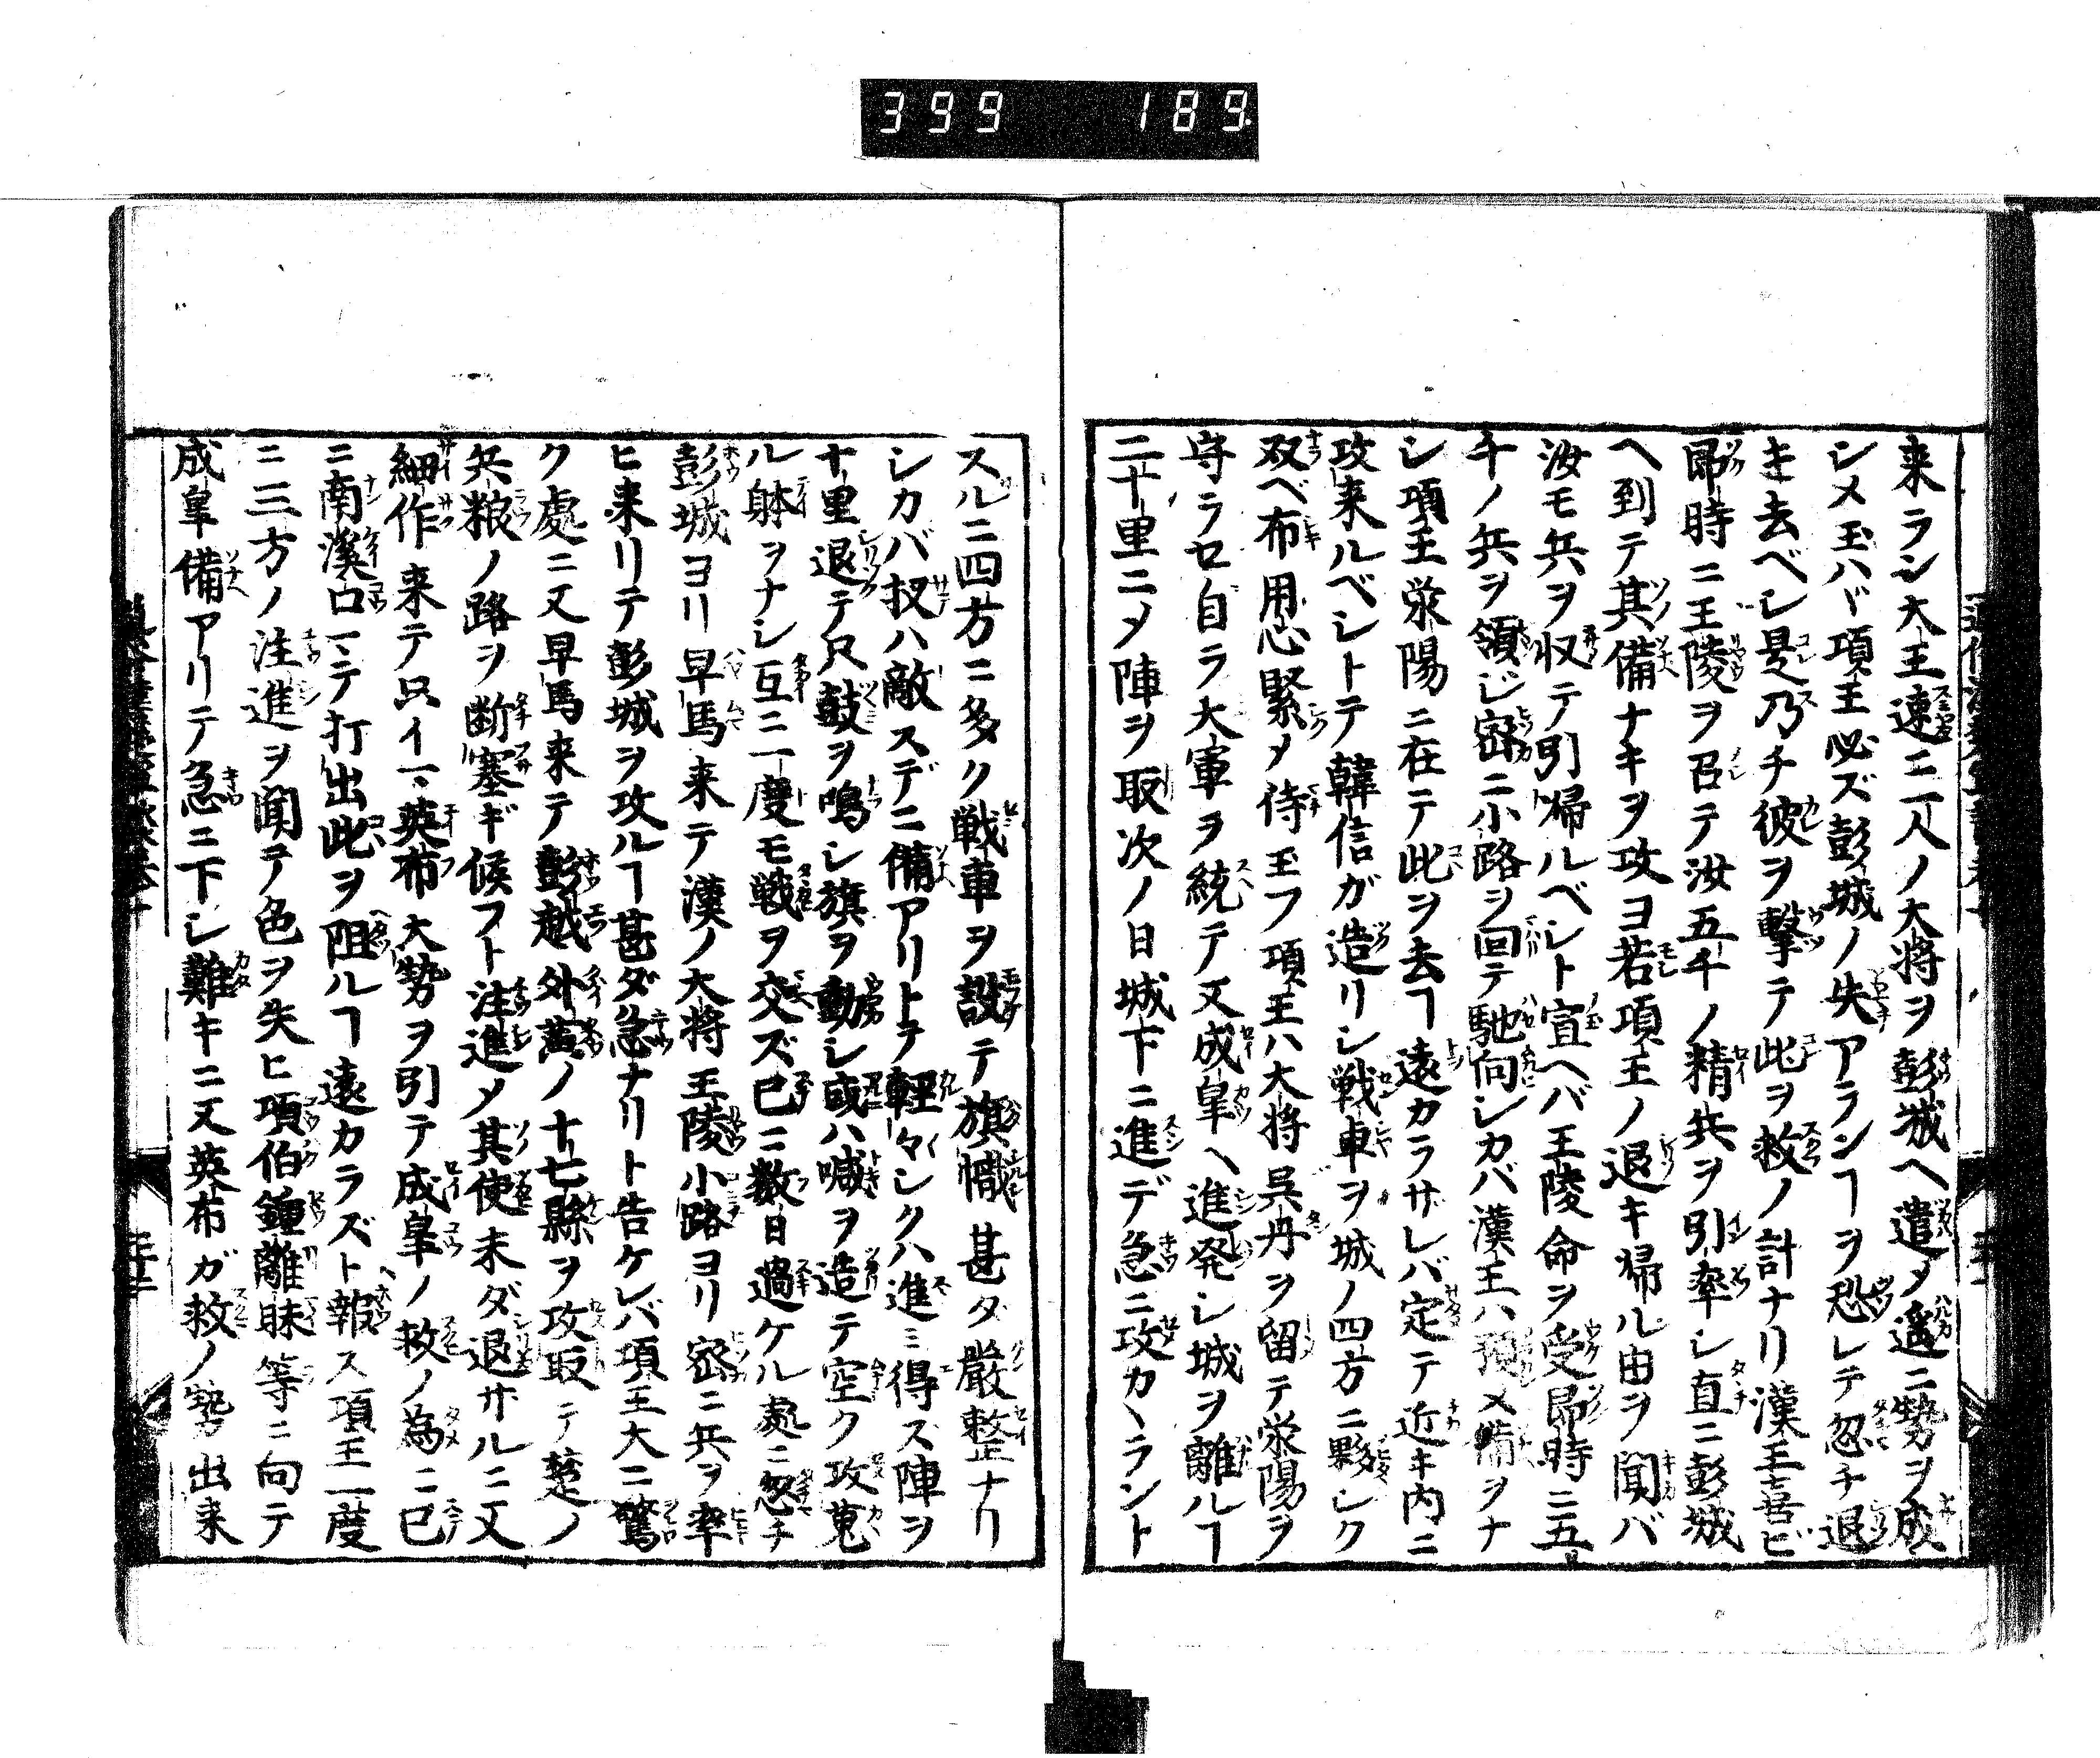 399 189
来ラン大王速ニ二人ノ大将ヲ彭城ヘ遣メ遥ニ勢ヲ成
シメ玉ハヾ項王必ズ彭城ノ失アランヿヲ恐レテ忽チ退
キ去ベレ是乃チ彼ヲ撃テ此ヲ救ノ計ナリ漢王喜ビ
即時ニ王陵ヲ召テ汝五千ノ精兵ヲ引率レ直ニ彭城
ヘ到テ其備ナキヲ攻ヨ若項王ノ退キ帰ル由ヲ聞バ
汝モ兵ヲ収テ引帰ルベレト宣ヘバ王陵命ヲ受即時ニ五
千ノ兵ヲ領じ密ニ小路ヲ回テ馳向レカバ漢王ハ預メ備ヲナ
シ項王栄陽ニ在テ此ヲ去ヿ遠カラサレバ定テ近キ内ニ
攻来ルベレトテ韓信ガ造リシ戦車ヲ城ノ四方ニ夥レク
双ベ布用心緊メ待玉フ項王ハ大将呉丹ヲ留テ栄陽ヲ
守ラセ自ラ大軍ヲ統テ又成皐ヘ進発レ城ヲ離ルヿ
二十里ニメ陣ヲ取次ノ日城下ニ進デ急ニ攻カヽラント
スルニ四方ニ多ク戦車ヲ設テ旗幟甚タ厳整ナリ
シカバ扠ハ敵スデニ備アリトテ軽々シクハ進ミ得ス陣ヲ
十里退テ只鼓ヲ鳴シ旗ヲ動シ或ハ喊ヲ造テ空ク攻蒐
ル躰ヲナシ互ニ一度モ戦ヲ交ズ已ニ数日過ケル処ニ忽チ
彭城ヨリ早馬来テ漢ノ大将王陵小路ヨリ密ニ兵ヲ率
ヒ来リテ彭城ヲ攻ルヿ甚ダ急ナリト告ケレバ項王大ニ驚
ク處ニ又早馬来テ彭越外黄ノ十七縣ヲ攻取テ楚ノ
兵粮ノ路ヲ断塞ギ候フト注進メ其使未ダ退サルニ又
細作来テ只イマ英布大勢ヲ引テ成皐ノ救ノ為ニ已
ニ南溪口マテ打出此ヲ阻ルヿ遠カラズト報ス項王一度
ニ三方ノ注進ヲ聞テ色ヲ失ヒ項伯鍾離昧等ニ向テ
成皐備アリテ急ニ下レ難キニ又英布ガ救ノ勢出来